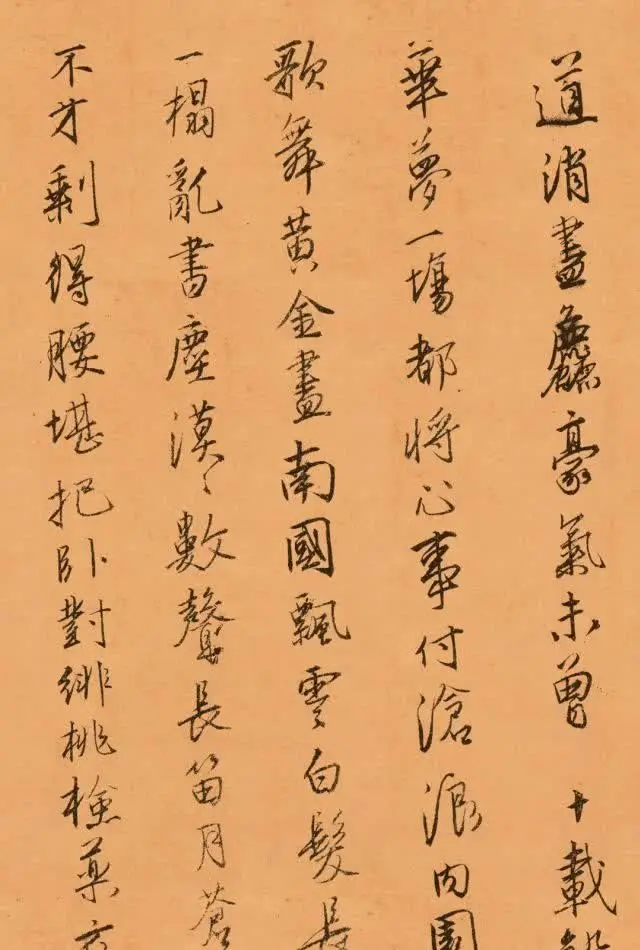 道消盡麤豪氣未曾 十載
華夢一塲都將心事付滄浪內園
歌舞黃金盡南國飄零白髮長
一榻亂書塵漠〻數聲長笛月蒼
不才剩得腰堪把臥對緋桃檢藥